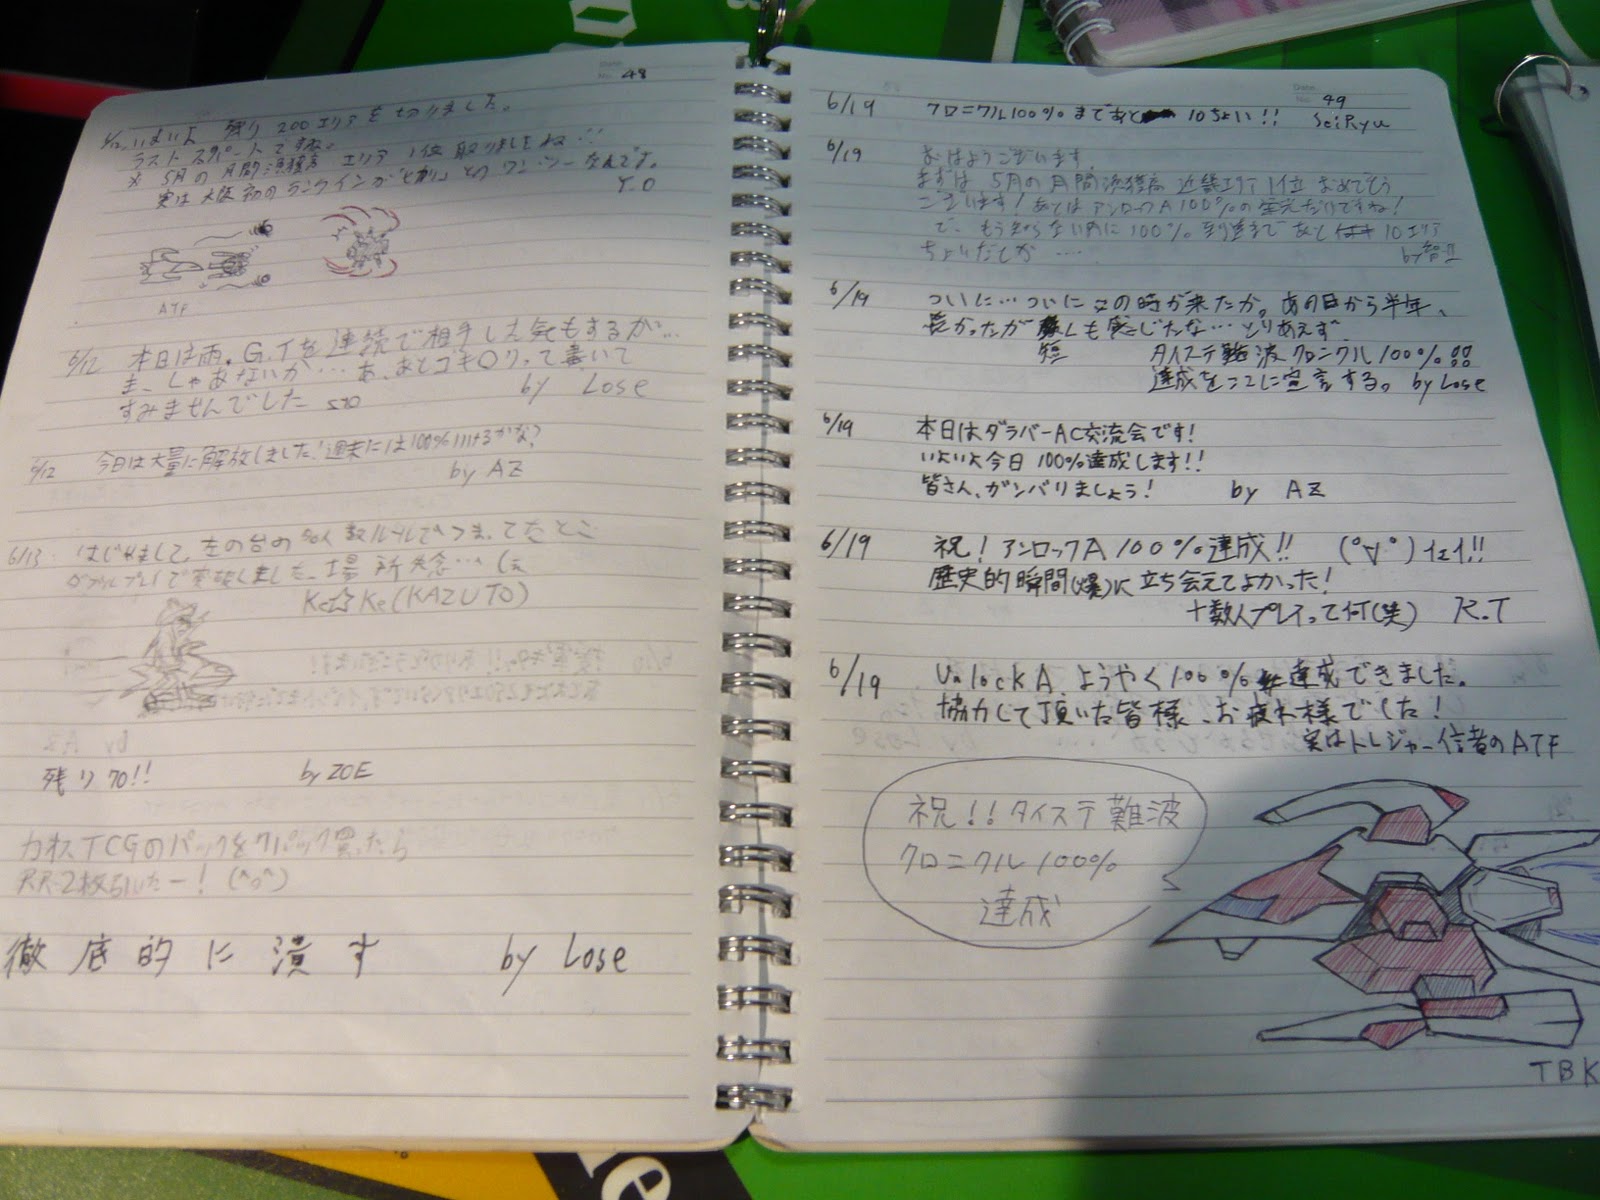 Date
No. 48
6/12 いよいよ 残り 200エリアを切りました。
ラストスパートですね。
※ 5月の月間漁獲高 エリア 1位取りましたね!!
実は大阪初のランクインが とのワン・ツーなんです。
Y.O
ATF
6/12 本日は雨。G.Tを連続で相手した気もするが…
ま、しゃあないか…あ、あとゴキ〇リって書いて
すみませんでした by Lose
6/12 今日は大量に解放しました!週末には100%いけるかな?
by AZ
6/13 はじめまして、左の台の多人数ルールでつまってたとこ
ダブルプレイで突破しました。場所 念…
Ke☆Ke(KAZUTO)
残り70!! by ZOE
TCGのパックを パック買ったら
RR2枚引いたー! (^o^)
徹底的に潰す by Lose
Date
No. 49
6/19 クロニクル100%まであと 10ちょい!! SeiRyu
6/19 おはようございます。
まずは 5月の月間漁獲高 近畿エリア1位 おめでとう
ございます!あとはアンロックA100%の だけですね!
で、もう知らない内に100%到達まであと 10エリア
ちょいだしか ‥‥
by智!!
6/19 ついに…ついにこの時が来たか。あの日から半年、
長かったが 短くも感じたな…とりあえず
タイステ難波クロニクル100%!!
達成をここに宣言する。by Lose
6/19 本日はダラバーAC交流会です!
いよいよ今日 100%達成します!!
皆さん、ガンバりましょう! by AZ
6/19 祝!アンロックA 100%達成!! (°∀°)イェイ!!
歴史的瞬間(爆)に立ち会えてよかった!
十数人プレイって何(笑) R.T
6/19 UnlockA、ようやく100%達成できました。
協力して頂いた皆様、お疲れ様でした!
実はトレジャー信者のATF
祝!!タイステ難波
クロニクル100%
達成
TBK